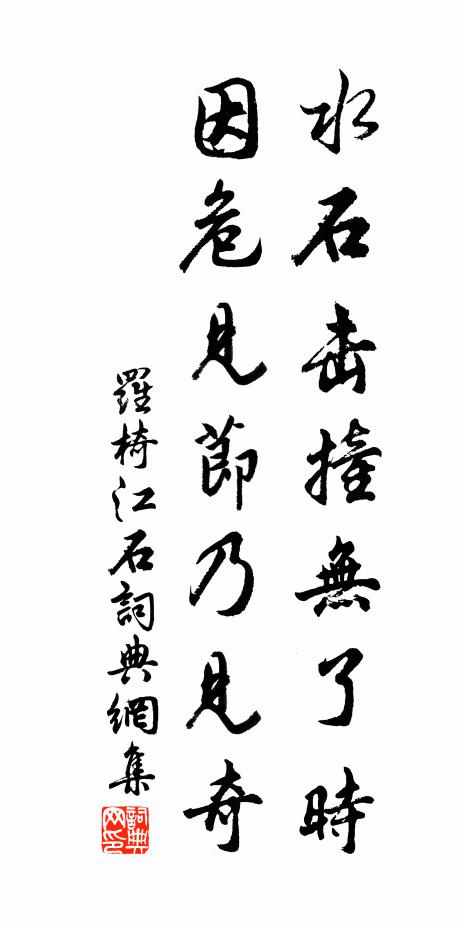 水石击撞無了時
因危見節乃見奇
羅椅江石詞典網集
詞典网印